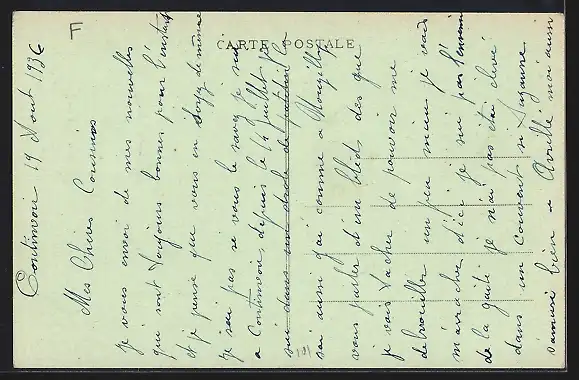 F
CARTE POSTALE
Continvoir 19 Aout 1936
Mes Chères Cousines
je vous envoi de mes nouvelles
qui sont toujours bonnes pour l'instant
et je pense que vous en soyez de même
je sai pas se vous le savez je sui
a Continvoir depuis le 14 juillet
sui dans un
sai aussi gai comme a Nouzilly
vous parler d'un bled des que
je vais tacher de pouvoir me
debrouiller un peu mieu je vais
m'arracher d'ici je sui pas l'ennemi
de la gaité je n'ai pas été élevé
dans un couvent si Suzanne
s'amuse bien a Avrillé moi aussi